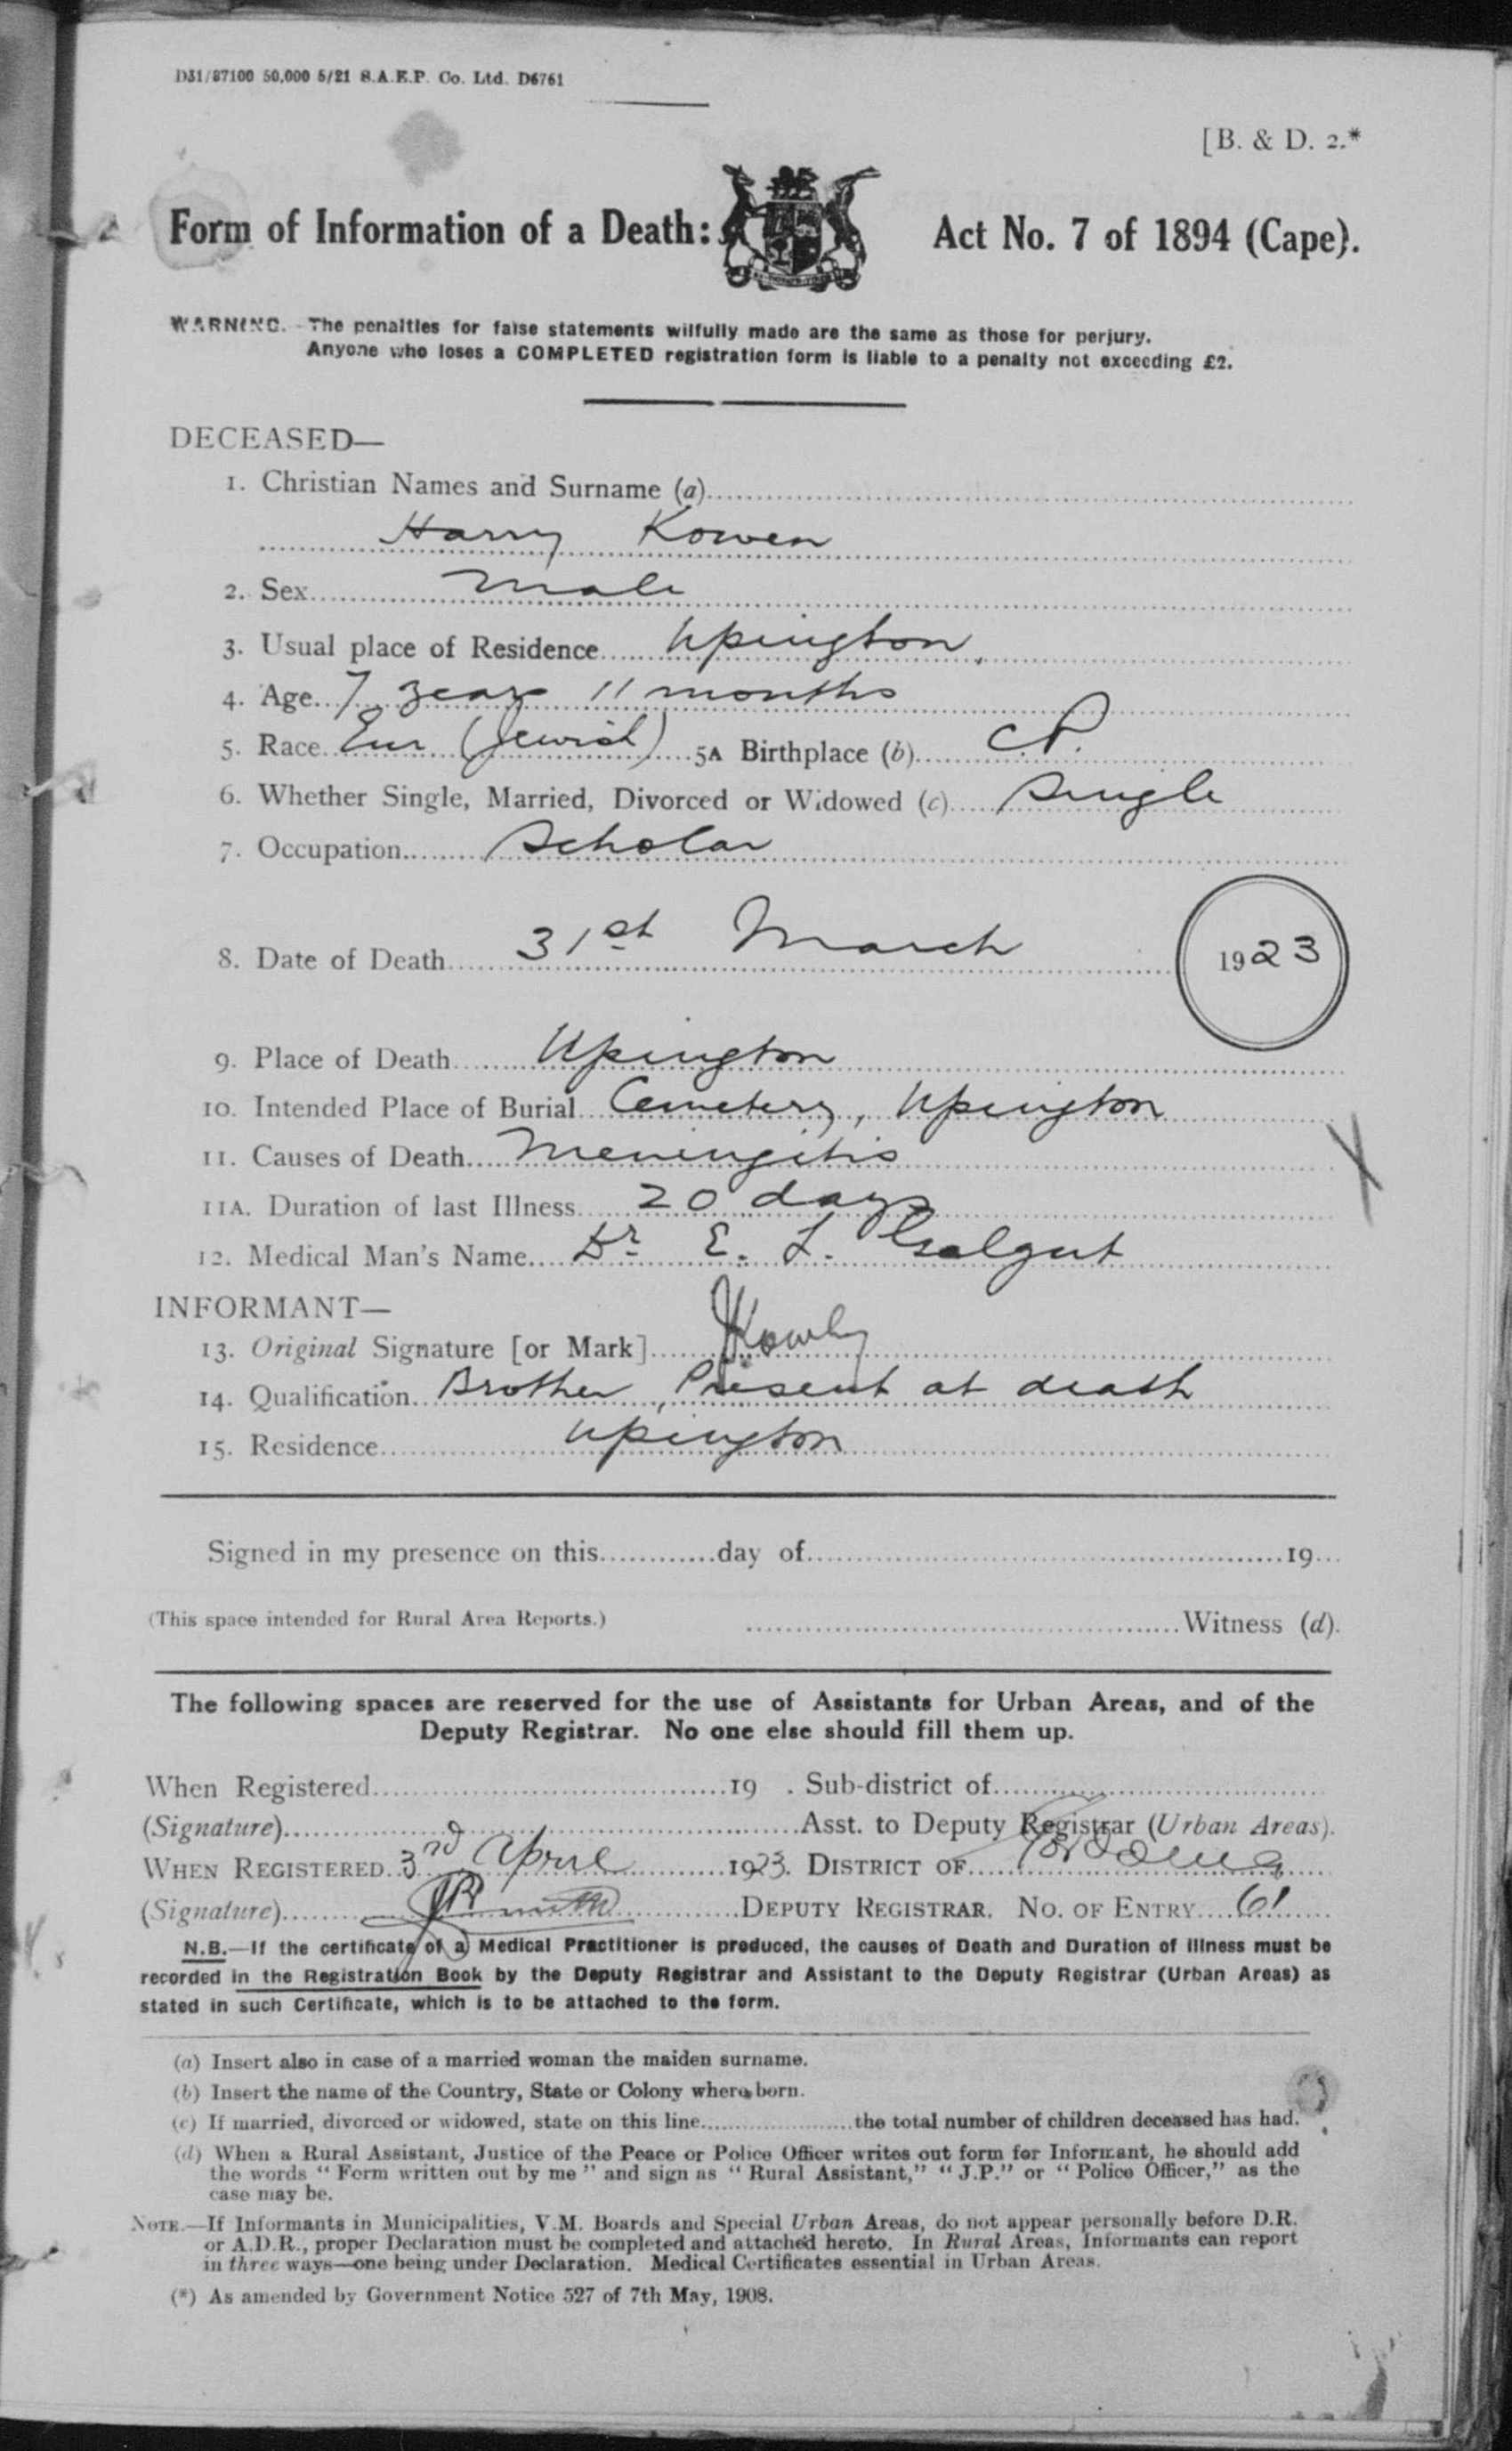 D31/87100 50,000 5/21 S.A.E.P. Co. Ltd. D6761
[B. & D. 2.*
Form of Information of a Death: Act No. 7 of 1894 (Cape).
WARNING. - The penalties for false statements wilfully made are the same as those for perjury.
Anyone who loses a COMPLETED registration form is liable to a penalty not exceeding £2.
DECEASED—
1. Christian Names and Surname (a)
Harry Kowen
2. Sex Male
3. Usual place of Residence Upington,
4. Age 7 years 11 months
5. Race Eur (Jewish) 5A Birthplace (b) C.P.
6. Whether Single, Married, Divorced or Widowed (c) Single
7. Occupation Scholar
8. Date of Death 31st March 1923
9. Place of Death Upington
10. Intended Place of Burial Cemetery, Upington
11. Causes of Death Meningitis
11A. Duration of last Illness 20 days
12. Medical Man's Name Dr E. L. Galgut
INFORMANT—
13. Original Signature [or Mark]
14. Qualification Brother, Present at death
15. Residence Upington
Signed in my presence on this day of 19
(This space intended for Rural Area Reports.) Witness (d).
The following spaces are reserved for the use of Assistants for Urban Areas, and of the
Deputy Registrar. No one else should fill them up.
When Registered 19 . Sub-district of
(Signature) Asst. to Deputy Registrar (Urban Areas).
WHEN REGISTERED 3rd April 1923. DISTRICT OF Gordonia
(Signature) DEPUTY REGISTRAR. NO. OF ENTRY 61
N.B.—If the certificate of a Medical Practitioner is produced, the causes of Death and Duration of Illness must be
recorded in the Registration Book by the Deputy Registrar and Assistant to the Deputy Registrar (Urban Areas) as
stated in such Certificate, which is to be attached to the form.
(a) Insert also in case of a married woman the maiden surname.
(b) Insert the name of the Country, State or Colony where born.
(c) If married, divorced or widowed, state on this line the total number of children deceased has had.
(d) When a Rural Assistant, Justice of the Peace or Police Officer writes out form for Informant, he should add
the words "Form written out by me" and sign as "Rural Assistant," "J.P." or "Police Officer," as the
case may be.
NOTE.—If Informants in Municipalities, V.M. Boards and Special Urban Areas, do not appear personally before D.R.
or A.D.R., proper Declaration must be completed and attached hereto. In Rural Areas, Informants can report
in three ways—one being under Declaration. Medical Certificates essential in Urban Areas.
(*) As amended by Government Notice 527 of 7th May, 1908.